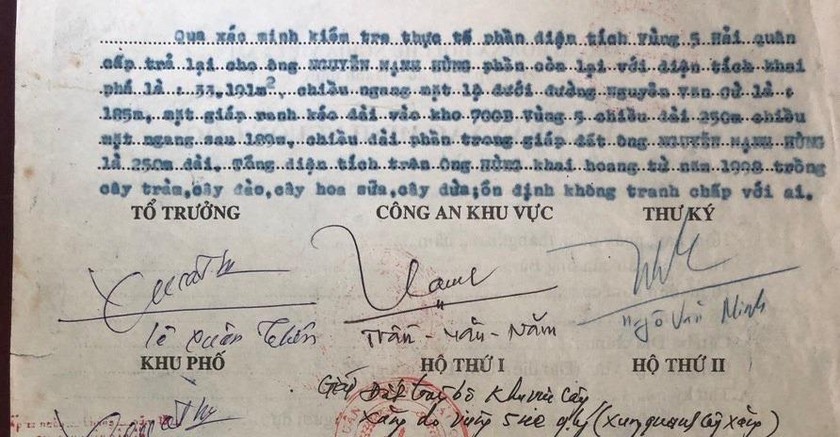 Qua xác minh kiểm tra thực tế phần diện tích Vùng 5 Hải quân
cấp trả lại cho ông NGUYỄN MẠNH HÙNG phần còn lại với diện tích khai
phá là : 33,191m², chiều ngang mặt lộ dưới đường Nguyễn Văn Cừ là :
185m, mặt giáp ranh kéo dài vào kho 700B Vùng 5 chiều dài 250m chiều
mặt ngang sau 189m, chiều dài phần trong giáp đất ông NGUYỄN MẠNH HÙNG
là 250m dài. Tổng diện tích trên Ông HÙNG khai hoang từ năm 1998 trồng
cây tràm, cây đào, cây hoa sữa, cây dừa; ổn định không tranh chấp với ai.
TỔ TRƯỞNG CÔNG AN KHU VỰC THƯ KÝ
Lê Xuân Trần - Văn - Năm Ngô Văn Minh
KHU PHỐ HỘ THỨ I HỘ THỨ II
Giáp Đất khu vực Cây
Xăng do vùng 5